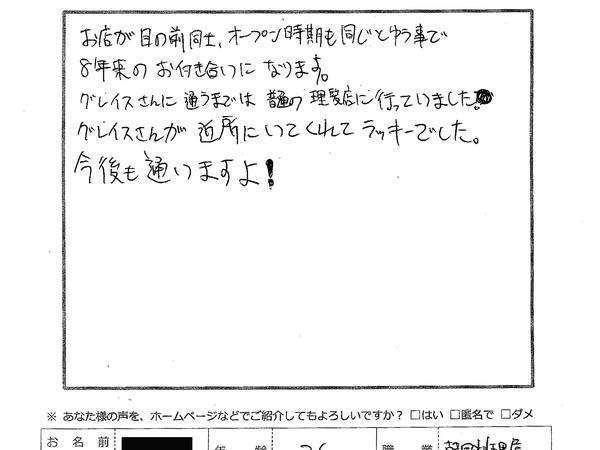 お店が目の前同士、オープン時期も同じとゆう事で
8年来のお付き合いになります。
グレイスさんに通うまでは普通の理髪店に行っていました。
グレイスさんが近所にいてくれてラッキーでした。
今後も通いますよ!
※ あなた様の声を、ホームページなどでご紹介してもよろしいですか? □はい □匿名で □ダメ
お名前 年齢 職業